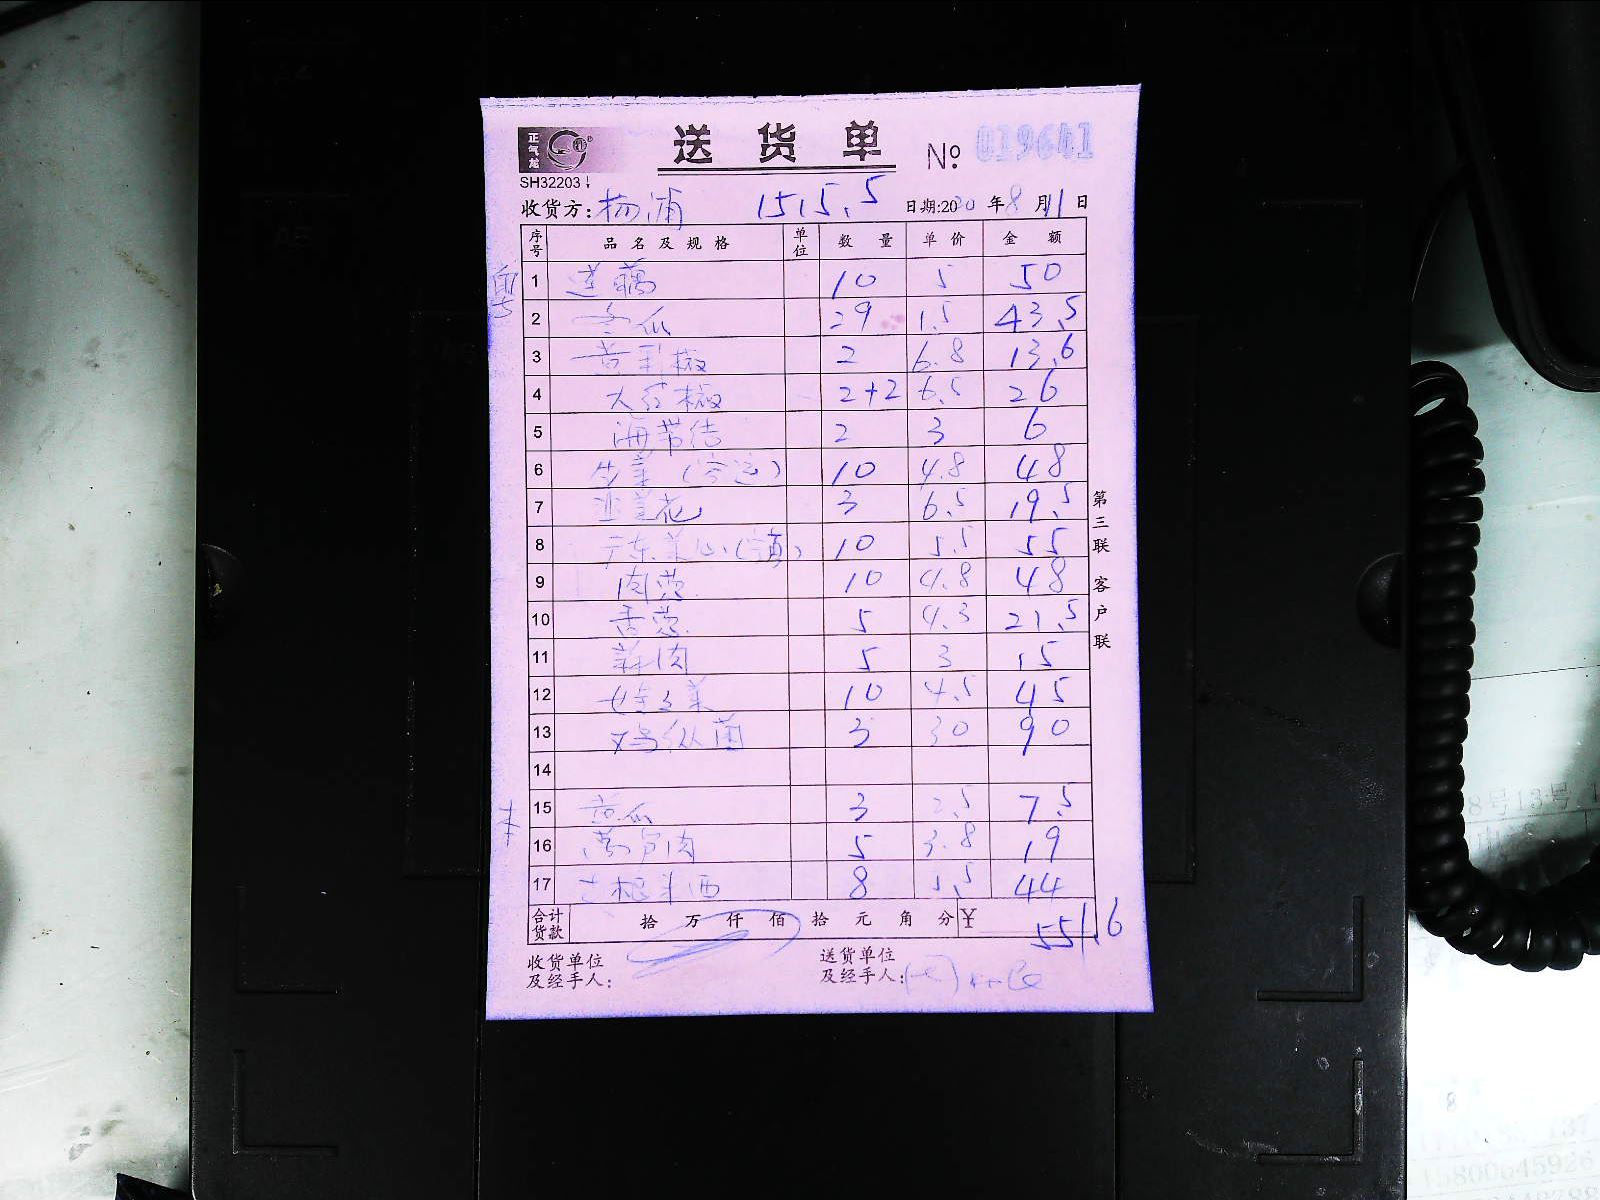 正气龙
送货单 № 019641
SH32203
收货方: 杨浦 1515.5 日期:2020年8月11日
序号 品名及规格 单位 数量 单价 金额
1 莲藕 10 5 50
2 冬瓜 29 1.5 43.5
3 黄彩椒 2 6.8 13.6
4 大红椒 2+2 6.5 26
5 海带结 2 3 6
6 生菜 10 4.8 48
7 韭菜花 3 6.5 19.5
8 广东菜心 10 5.5 55
9 肉葱 10 4.8 48
10 香葱 5 4.3 21.5
11 蒜肉 5 3 15
12 娃娃菜 10 4.5 45
13 鸡枞菌 3 30 90
14
15 黄瓜 3 2.5 7.5
16 莴笋肉 5 3.8 19
17 8 5.5 44
合计货款 拾万仟佰拾元角分 ¥ 551.6
收货单位及经手人: 送货单位及经手人:
第三联 客户联
8号13号
137
15800645926